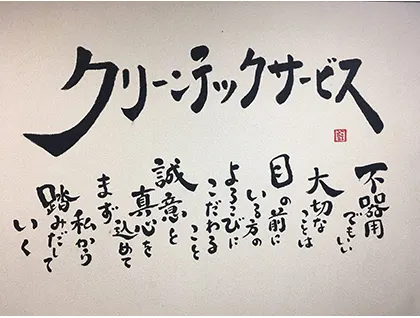 クリーンテックサービス
不器用
でもいい
大切な
ことは
目の前に
いる方の
よろこびに
こだわること
誠意と
真心を
込めて
まず
私から
踏みだして
いく